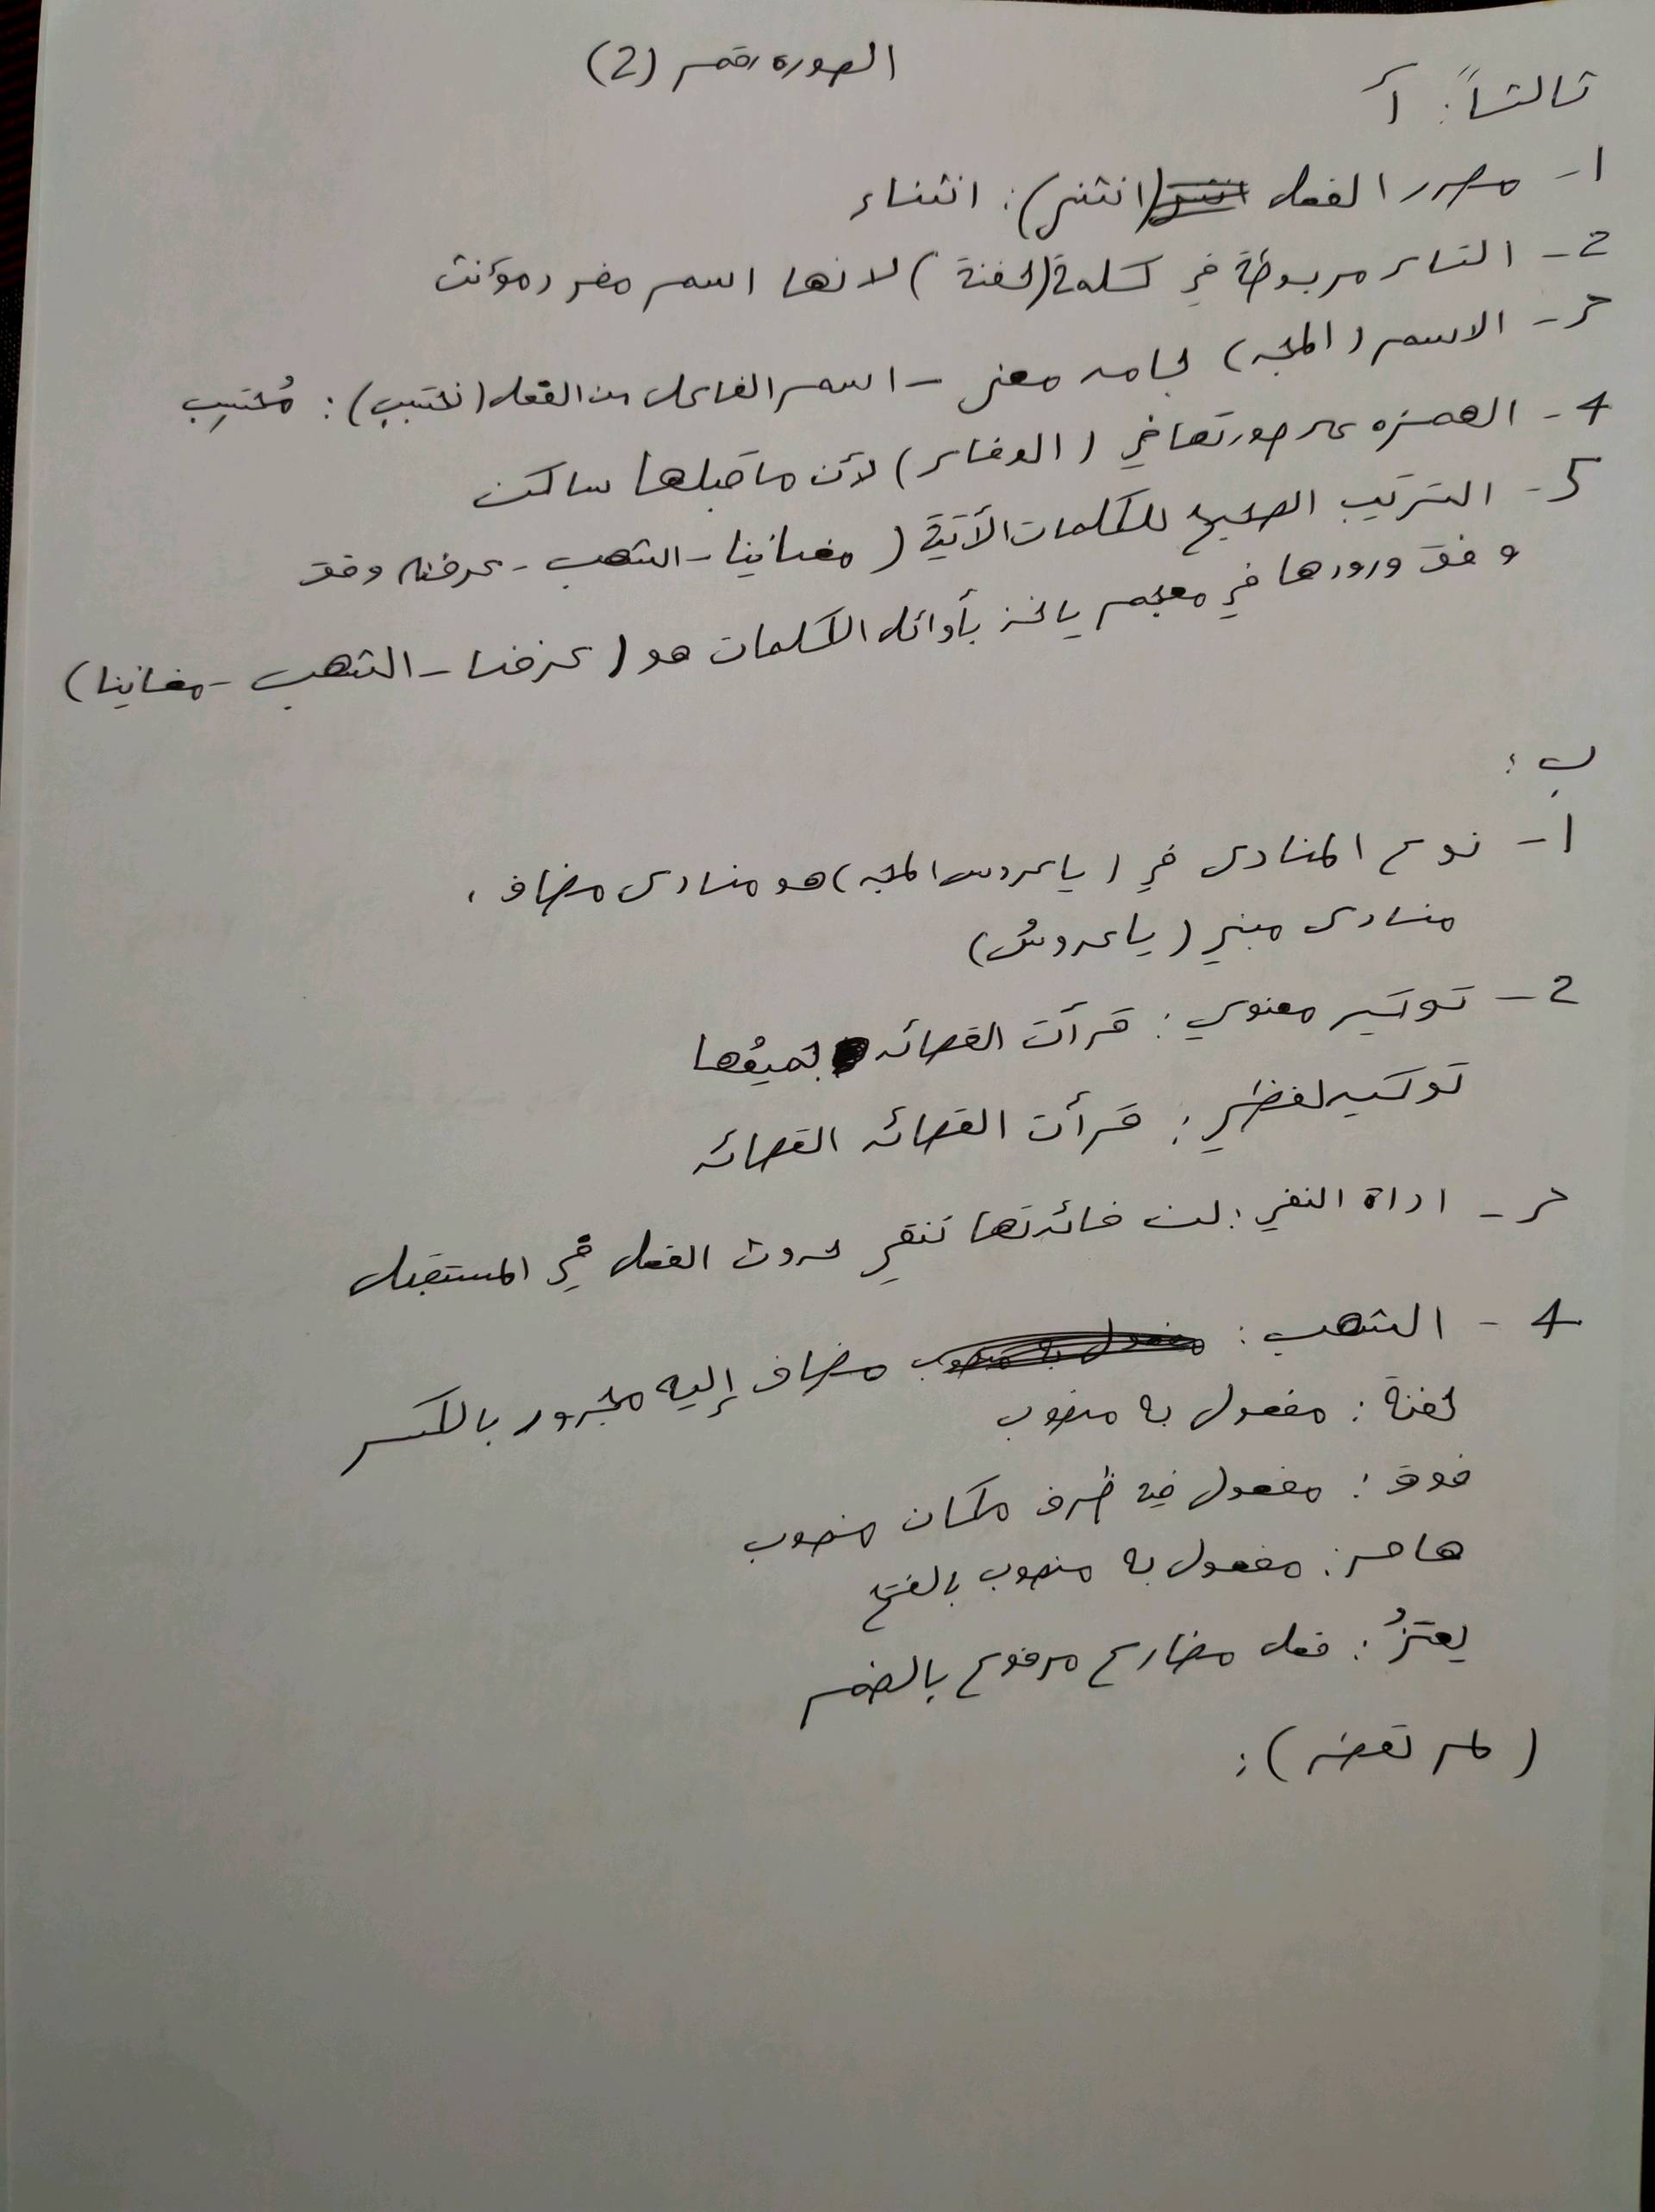 الصورة رقم (2)
ثالثاً: أ
1- مصدر الفعل (انثنى): انثناء
2- التاء مربوطة في كلمة (حفنة) لانها اسم مفرد مؤنث
3- الاسم (المجد) جامد معنى - اسم الفاعل من الفعل (نحتسب): مُحتسِب
4- الهمزه على صورتها في (الوفاء) لأن ما قبلها ساكن
5- الترتيب الصحيح للكلمات الآتية (مغانينا - الشهب - عرفنا وفق
وفق ورودها في معجم ياخذ بأوائل الكلمات هو (عرفنا - الشهب - مغانينا)
ب:
1- نوع المنادى في (يا عروس المجد) هو منادى مضاف،
منادى مبني (يا عروسُ)
2- توكيد معنوي: قرأت القصائد جميعُها
توكيد لفظي: قرأت القصائد القصائد
3- اداة النفي: لن فائدتها تنفي حدوث الفعل في المستقبل
4- الشهب: مضاف إليه مجرور بالكسر
حفنة: مفعول به منصوب
فوق: مفعول فيه ظرف مكان منصوب
هامز: مفعول به منصوب بالفتح
يعتزُ: فعل مضارع مرفوع بالضم
(لم تغض):